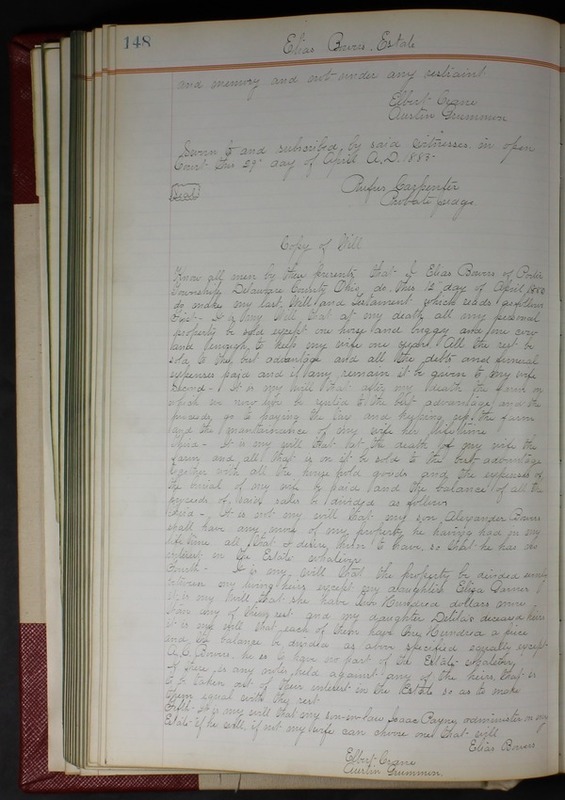 148
Elias Bowers Estate
and memory and not under any restraint
Elbert Crane
Austin Grummon
Sworn to and subscribed by said witnesses in open
Court this 23" day of April A.D. 1883-
Seal
Rufus Carpenter
Probate Judge
Copy of Will
Know all men by these presents that I Elias Bowers of Porter
Township Delaware County Ohio do this 12 day of April 188
do make my last Will and Testament which reads as follows
First- It is my Will that at my death all my personal
property be sold except one horse and buggy and one cow
and enough to keep my wife one year. All the rest be
sold to the best advantage and all the debts and funeral
expenses paid and if any remain it be given to my wife
Second- It is my Will that after my death the farm on
which we now live be rented to the best advantage and the
proceeds go to paying the tax and keeping up the farm
and the maintainance of my wife her lifetime
Third- It is my will that at the death of my wife the
farm and all that is on it be sold to the best advantage
together with all the household goods and the expenses of
the burial of my wife be paid and the balance of all the
proceeds of said sales be divided as follows
Third- It is not my will that my son Alexander Bowers
shall have any more of my property he having had in my
life time all that I desire him to have, so that he has no
interest in the Estate whatever
Fourth- It is my will that the property be divided
between my living heirs except my daughter Eliza
it is my Will that she have Two Hundred dollars more
than any of the rest and my daughter Delila's deceased heirs
it is my will that each of them have One Hundred a piece
and the balance be divided as above specified equally except
A.C. Bowers he is to have no part of the Estate
if there is any notes held against any of the heirs that is
to be taken out of their interest in the Estate so as to make
them equal with the rest
Fifth- It is my will that my son-in-law Isaac Payne administer on my
Estate if he will, if not my wife can choose one that will
Elias Bowers
Elbert Crane
Austin Grummon.